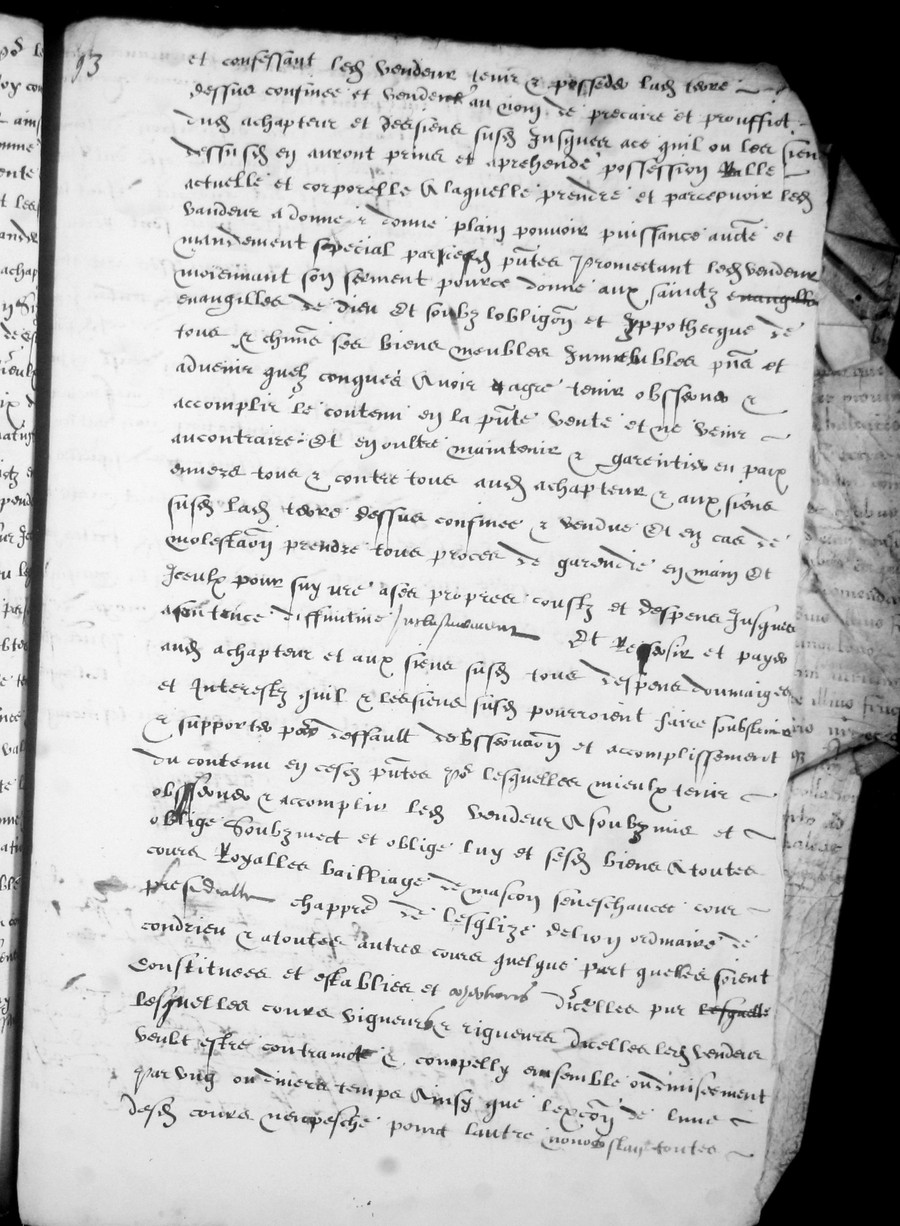 93
et confessant led vendeur tenir & posseder lad terre
dessus confinee et vendue au nom de precaire et prouffict
dud achapteur et des siens susd Jusques ace quil ou les siens
dessusd en auront prins et aprehende possession Realle
actuelle et corporelle A laquelle prendre et parcepvoir led
vandeur a donne & donne plain pouvoir puissance aucte et
mandement special par cesd pntes Promectant led vendeur
moiennant son serment pource donne aux sainctz evangilles
evangilles de dieu Et soubz lobligon et Yppothecque de
tous & chms ses biens meubles Immeubles pns et
advenir quelz conques Avoir agre tenir observer &
accomplir le contenu en la pnte vente et ne venir
aucontraire Et en oultre maintenir & garentir en paix
envers tous & contre tous aud achapteur & aux siens
susd lad terre dessus confinee & vendue Et en cas de
molestaon prendre tous proces de garendie en main Et
Iceulx poursuyvre a ses propres coustz et despens Jusques
a sentence diffinitive Inclusivement Et Ressosir et payer
aud achapteur et aux siens susd tous despens doumaiges
et Interestz quil & les siens susd pourroient faire soubstenir
& supporter par deffault de observaon et accomplissement
du contenu en cesd pntes Por lesquelles mieulx tenir
observer & accomplir led vendeur A soubzmis et
oblige Soubzmect et oblige luy et sesd biens A toutes
cours Royalles bailliage de mascon seneschaucee cour
presidialle chappre de lesglize de lion ordinaire de
condrieu & a toutes autres cours quelque part quelles soient
Constituees et establies et dicelles par lesquelles
lesquelles cours vigueurs & rigueurs dicelles led vendeur
veult estre contrainct & compelly ensemble ou divisement
par ung ou divers temps Ainsy que lexcon de lune
desd cours nempesche poinct lautre nonobstant toutes